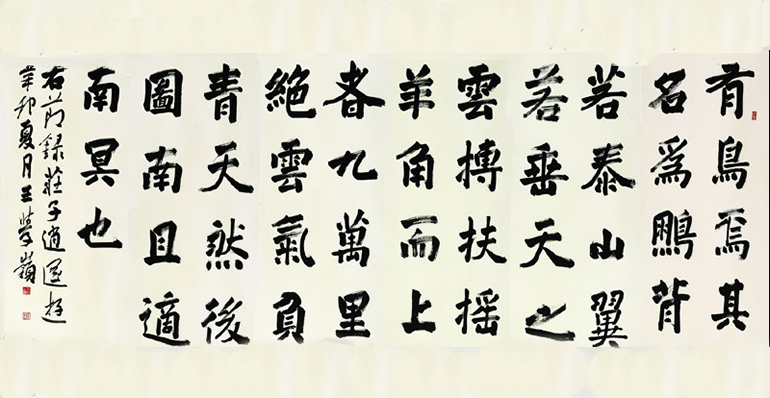 有鳥焉其
名爲鵬背
若泰山翼
若垂天之
雲搏扶摇
羊角而上
者九萬里
絕雲氣負
青天然後
圖南且適
南冥也
右节録莊子逍遥遊
辛卯夏月王